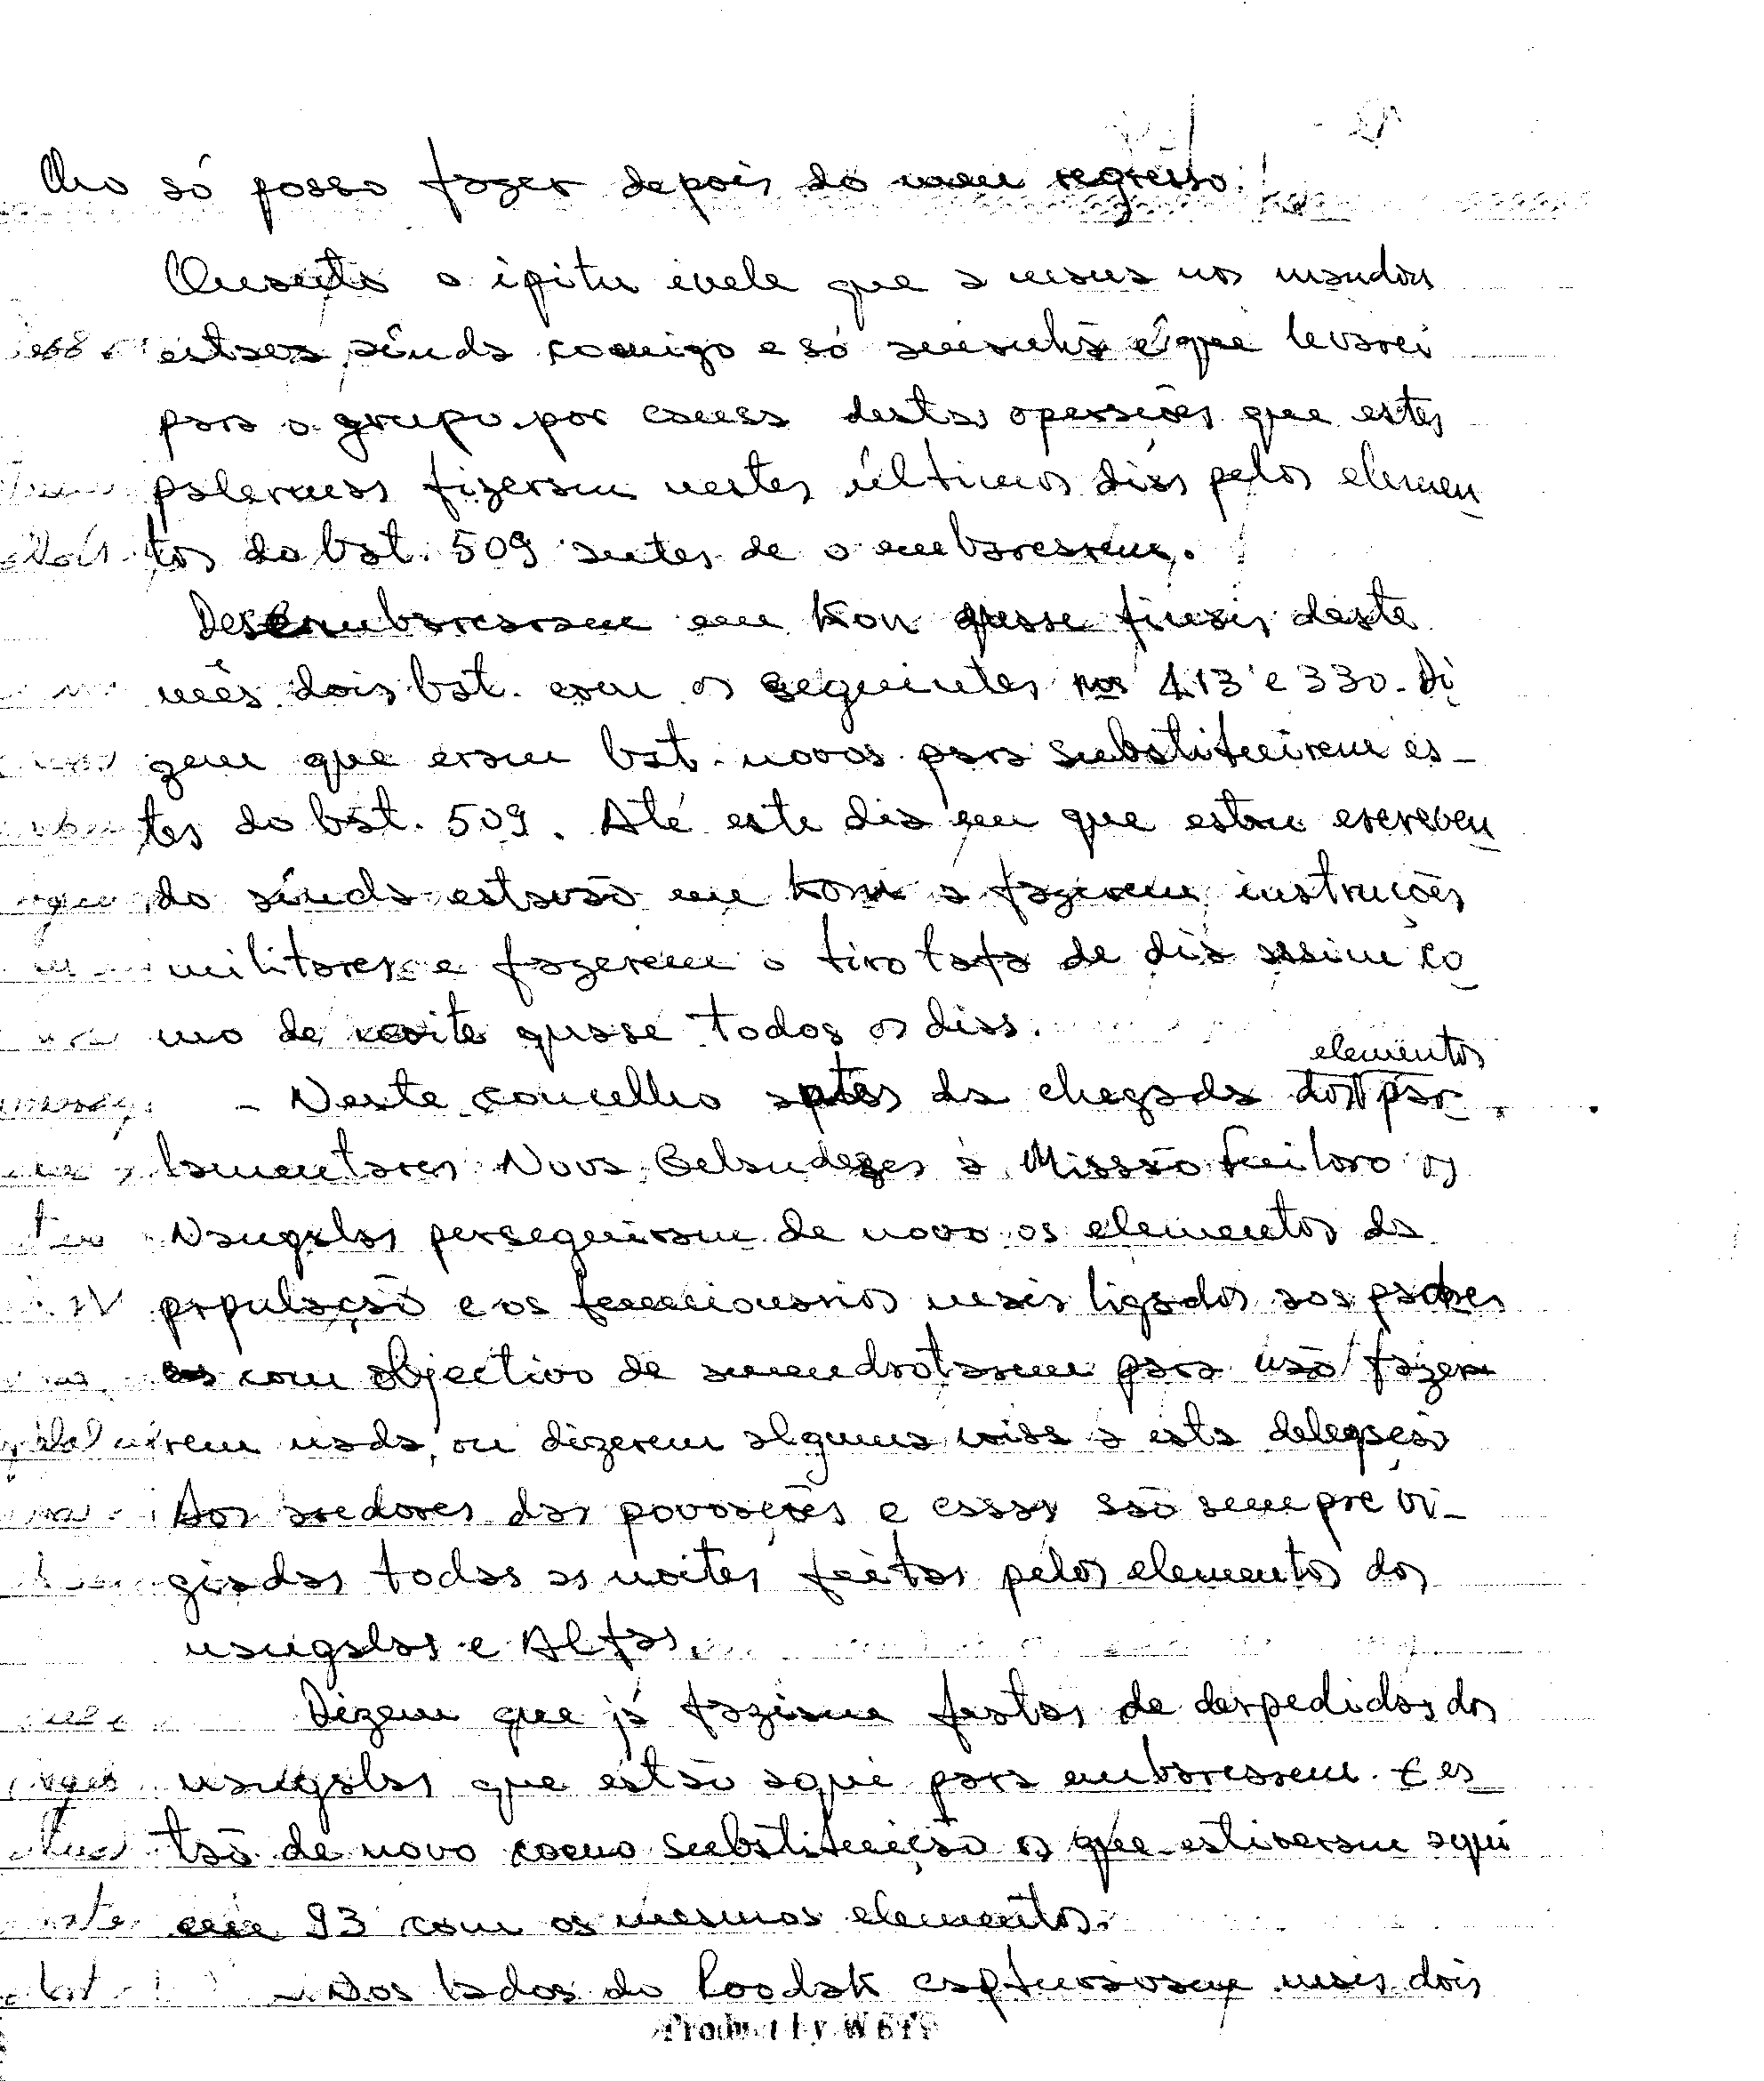 lho só posso fazer depois do meu regresso.
Quanto o ipitu evele que a mana nos mandou
estava ainda comigo e só amanhã é que levarei
para o grupo por causa destas operações que estes
palermas fizeram nestes últimos dias pelos elemen
tos do bat. 509 antes de o embarcarem.
Desembarcaram em Kon quase finais deste
mês dois bat. com os seguintes nos 413 e 330. Di
zem que eram bat. novos para substituirem es-
tes do bat. 509. Até este dia em que estou escreven
do ainda estavão em Kon a fazerem instruções
militares e fazerem o tiro de dia assim co
mo de noite quase todos os dias.
elementos
- Neste concelho após da chegada dos par
lamentares Nova Zelandezes à Missão Fuiloro os
Nanggalas perseguiram de novo os elementos da
população e os funcionarios mais ligados aos padres
com objectivo de amendrotarem para não faze
rem nada, ou dizerem alguma coisa a esta delegação
Aos aredores das povoações e essas são sempre vi-
giadas todas as noites feitas pelos elementos dos
nangalas e Alfas.
Dizem que já faziam festas de despedidas dos
nangalas que estão aqui para embarcarem. E es-
tão de novo como substituição os que estiveram aqui
em 93 com os mesmos elementos.
- Aos lados do Loodak capturavam mais dois